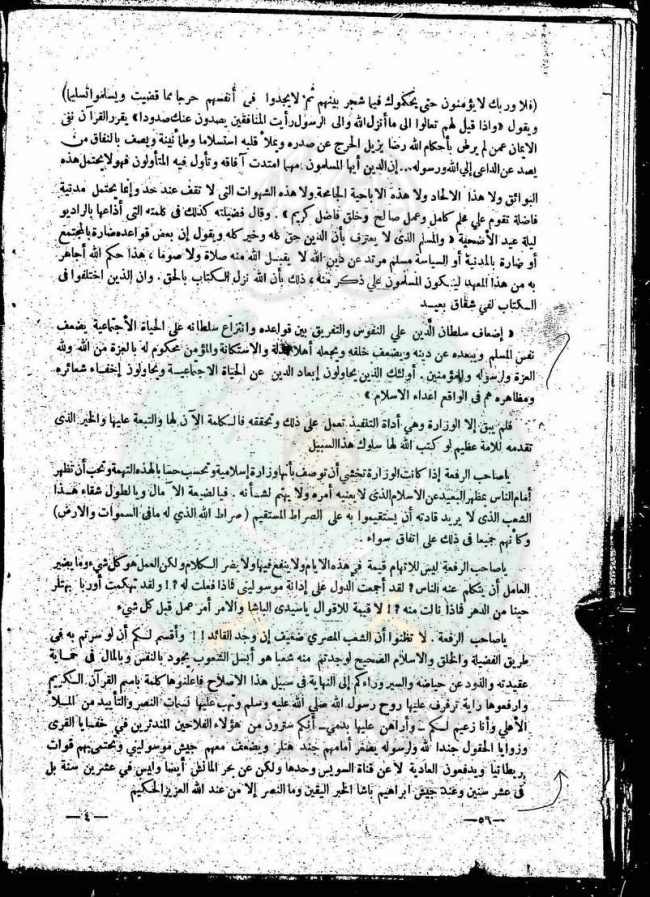 (فلا وربك لا يؤمنون حتى يحكموك فيما شجر بينهم ثم لايجدوا فى أنفسهم حرجا مما قضيت ويسلموا تسليما)
ويقول «واذا قيل لهم تعالوا الى ما أنزل الله والى الرسول رأيت المنافقين يصدون عنك صدودا» يقرر القرآن نفى
الايمان عمن لم يرض بأحكام الله رضا يزيل الحرج عن صدره ويملأ قلبه استسلاما وطمأنينة ويصف بالنفاق من
يصد عن الداعى إلى الله ورسوله... إن الدين أيها المسلمون مهما امتدت آفاقه وتأول فيه المتأولون فهو لايحتمل هذه
البوائق ولا هذا الالحاد ولا هذه الاباحية الجامحة ولا هذه الشهوات التى لا تقف عند حد وإنما يحتمل مدنية
فاضلة تقوم علي علم كامل وعمل صالح وخلق فاضل كريم». وقال فضيلته كذلك فى كلمته التى أذاعها بالراديو
ليلة عيد الأضحية «والمسلم الذى لا يعترف بأن الدين حق كله وخير كله ويقول إن بعض قواعده ضارة بالمجتمع
أو ضارة بالمدنية أو السياسة مسلم مرتد عن دين الله لا يقبل الله منه صلاة ولا صوما، هذا حكم الله أجاهر
به من هذا المعهد ليكون المسلمون علي ذكر منه، ذلك بأن الله نزل الكتاب بالحق. وان الذين اختلفوا فى
الكتاب لفي شقاق بعيد
« إضعاف سلطان الدين علي النفوس والتفريق بين قواعده وانتزاع سلطانه على الحياة الاجتماعية يضعف
نفس المسلم ويبعده عن دينه ويضعف خلقه ويجعله أهلا للذلة والاستكانة والمؤمن محكوم له بالعزة من الله ولله
العزة ولرسوله وللمؤمنين. أولئك الذين يحاولون إبعاد الدين عن الحياة الاجتماعية ويحاولون إخفاء شعائره
ومظاهره هم فى الواقع أعداء الاسلام »
فلم يبق إلا الوزارة وهي أداة التنفيذ تعمل على ذلك وتحققه فالكلمة الآن لها والتبعة عليها والخير الذى
تقدمه للامة عظيم لو كتب الله لها سلوك هذا السبيل
ياصاحب الرفعة إذا كانت الوزارة تخشي أن توصف بأنها وزارة إسلامية وتحسب حسابا لهذه التهمة وتحب أن تظهر
أمام الناس بمظهر البعيد عن الاسلام الذى لا يعنيه أمره ولا يهتم لشأنه. فيالضيعة الآمال ويالطول شقاء هذا
الشعب الذى لا يريد قادته أن يستقيموا به على الصراط المستقيم (صراط الله الذي له مافى السموات والارض)
وكأنهم جميعا فى ذلك على اتفاق سواء
ياصاحب الرفعة ليس للاتهام قيمة فى هذه الايام ولا ينفع فيها ولا يضر الكلام ولكن العمل هو كل شيء وما يضير
العامل أن يتكلم عنه الناس؟ لقد أجمعت الدول على إدانة موسوليني فماذا فعلت له؟! ولقد تهكمت أوربا بهتلر
حينا من الدهر فماذا نالت منه؟! لا قيمة للاقوال ياسيدى الباشا والامر أمر عمل قبل كل شيء
ياصاحب الرفعة. لا تظنوا أن الشعب المصري ضعيف إن وجد القائد!! وأقسم لكم أن لو سرتم به فى
طريق الفضيلة والخلق والاسلام الصحيح لوجدتم منه شعبا هو أبسل الشعوب يجود بالنفس وبالمال فى حماية
عقيدته والذود عن حياضه والسير وراءكم إلى النهاية فى سبيل هذا الاصلاح فاعلنوها كلمة باسم القرآن الكريم
وارفعوها راية ترفرف عليها روح رسول الله صلي الله عليه وسلم وتهب عليها نسمات النصر والتأييد من الملأ
الأعلي وأنا زعيم لكم - وأراهن عليها بدمي - أنكم سترون من هؤلاء الفلاحين المندثرين في خفايا القرى
وزوايا الحقول جندا لله ولرسوله يصغر أمامهم جند هتلر ويضعف معهم جيش موسوليني وتحتمي بهم قوات
بريطانيا ويدفعون العادية لا عن قناة السويس وحدها ولكن عن بحر المانش أيضا وليس في عشرين سنة بل
فى عشر سنين وعند جيش ابراهيم باشا الخبر اليقين وما النصر إلا من عند الله العزيز الحكيم
—٥٦— —٤—